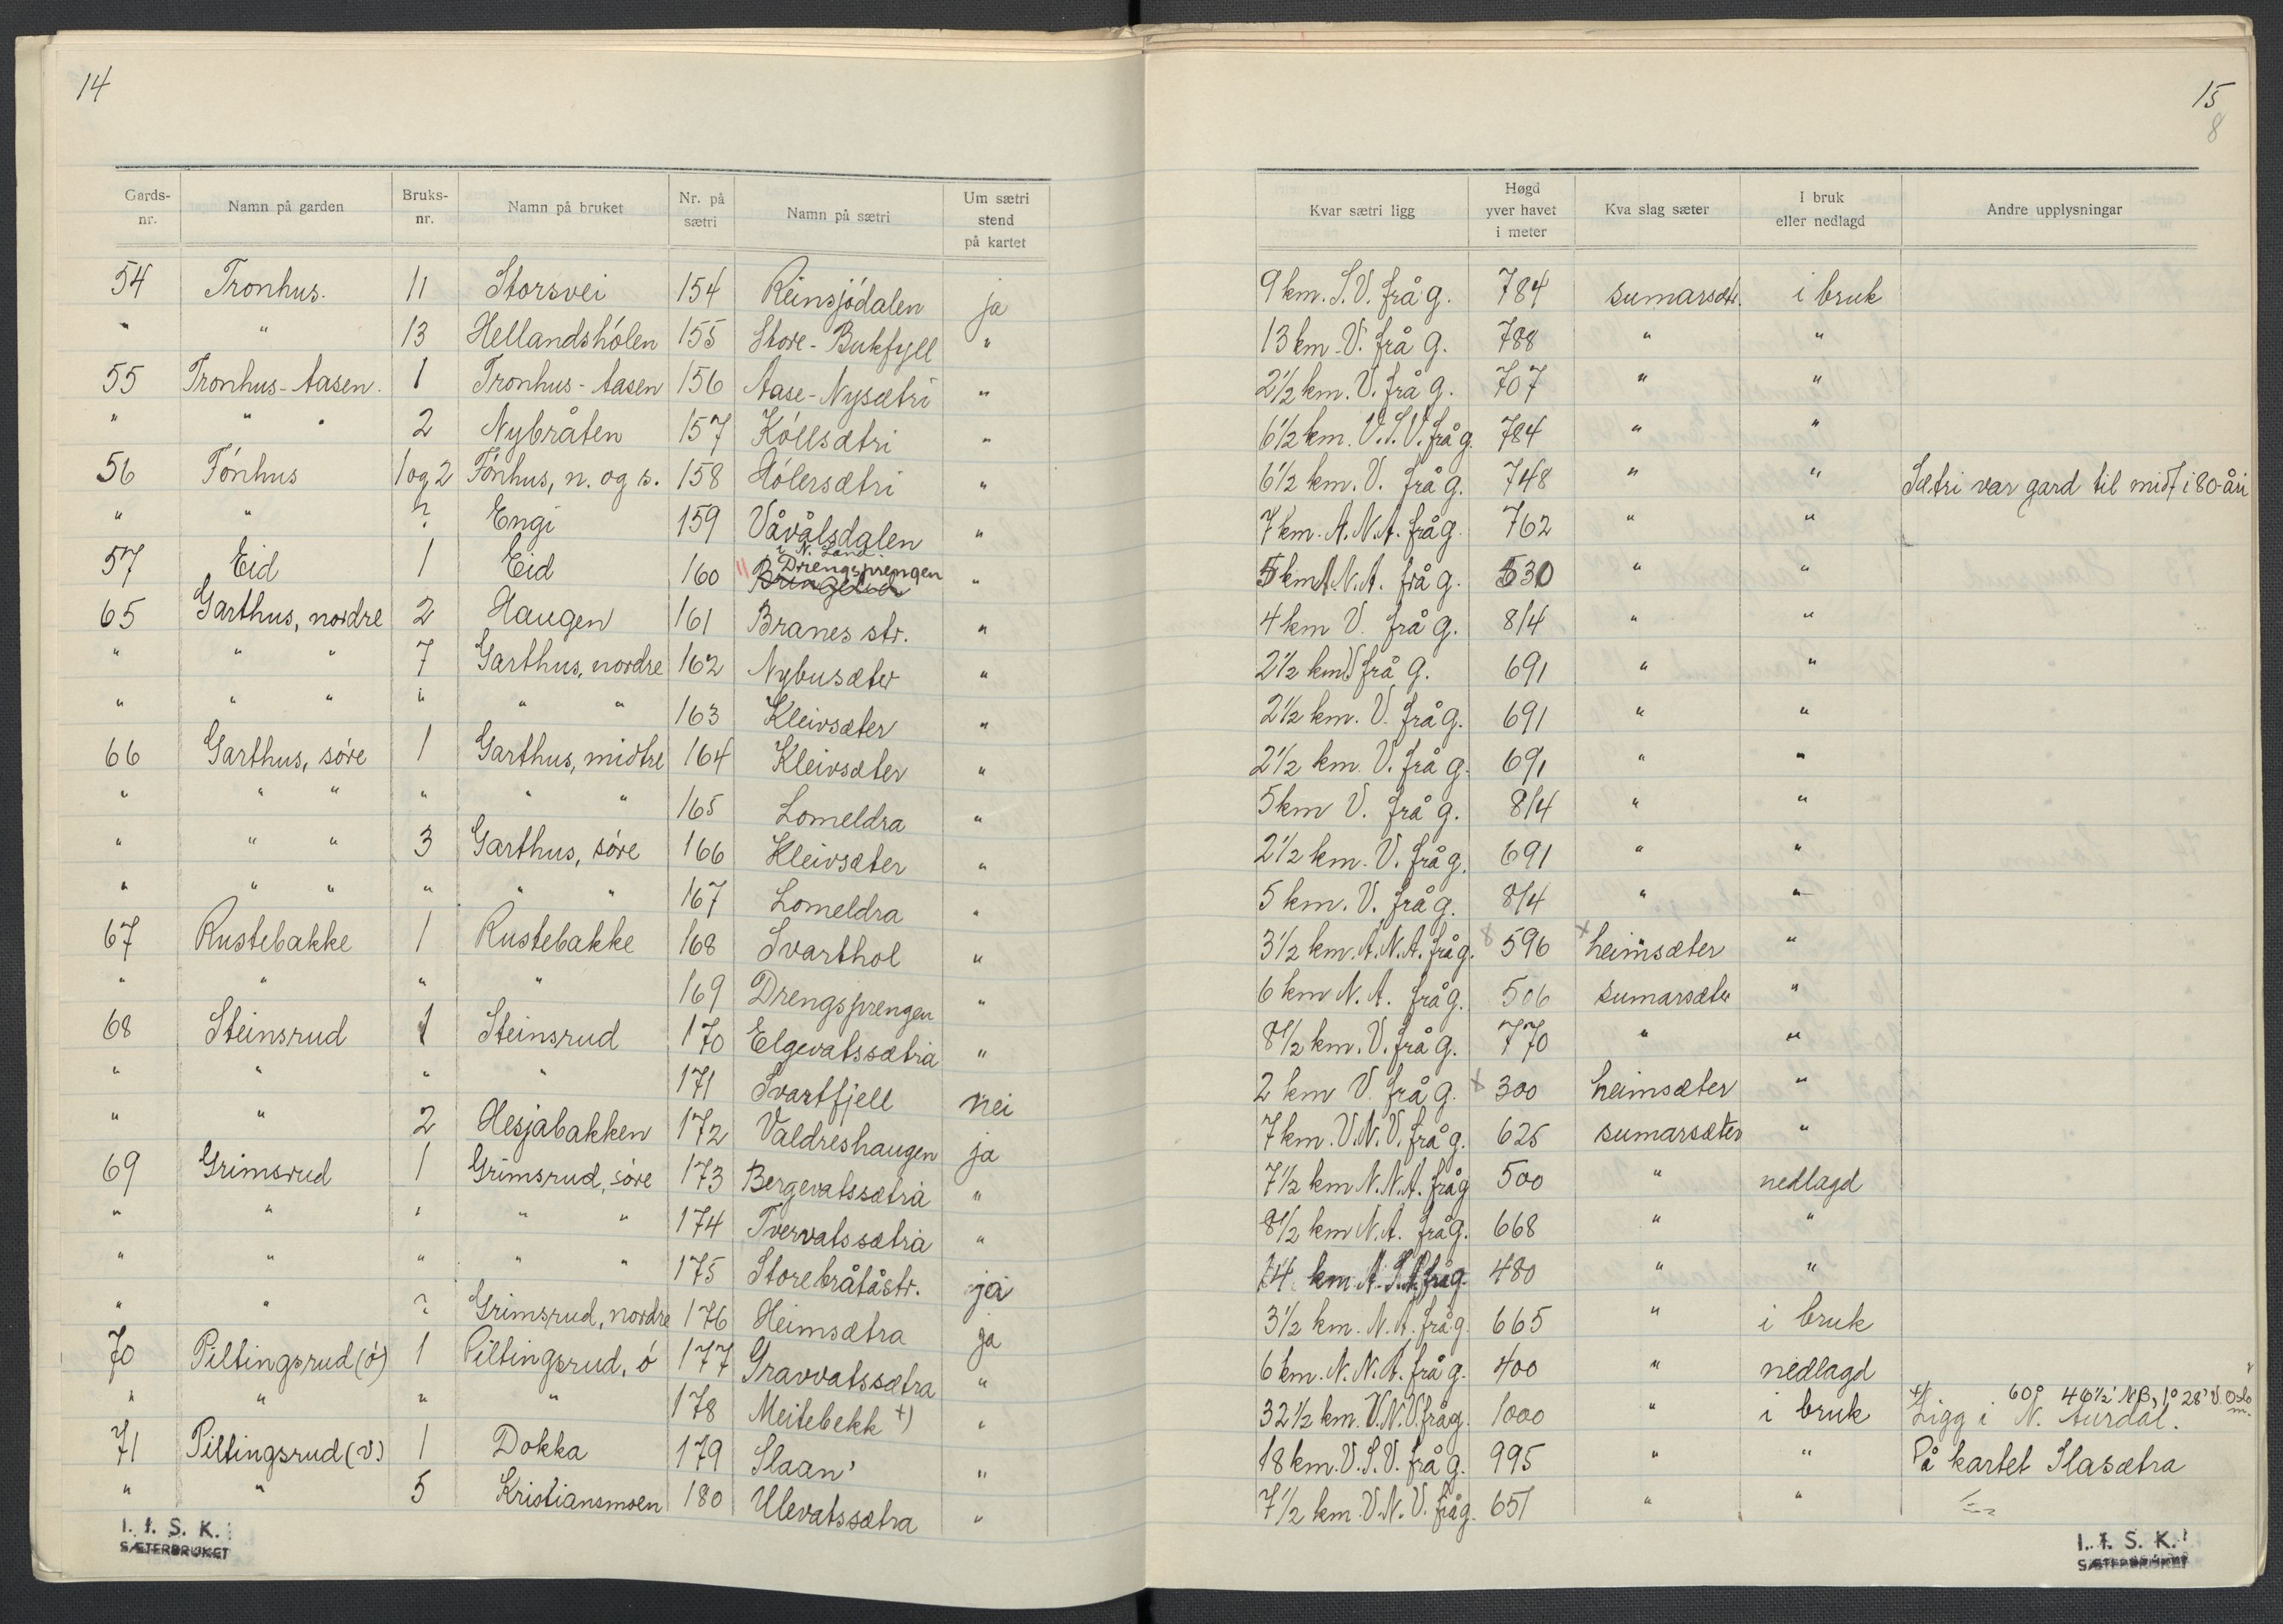 14
Gards-nr. | Namn på garden | Bruks-nr. | Namn på bruket | Nr. på sætri | Namn på sætri | Um sætri stend på kartet
54 | Tronhus. | 11 | Storsvei | 154 | Reinsjódalen | ja
" | " | 13 | Hellandshólen | 155 | Store-Bukfyll | "
55 | Tronhus-Aasen. | 1 | Tronhus-Aasen | 156 | Aase-Nysætri | "
" | " " | 2 | Nybråten | 157 | Kóllsætri | "
56 | Fónhus | 1 og 2 | Fónhus, n. og s. | 158 | Hólersætri | "
" | " | ? | Engi | 159 | Våvålsdalen | "
57 | Eid | 1 | Eid | 160 | i N. Land Drengsprengen | "
65 | Garthus, nordre | 2 | Haugen | 161 | Branes str. | "
" | " " | 7 | Garthus, nordre | 162 | Nybusæter | "
" | " " | " | " " | 163 | Kleivsæter | "
66 | Garthus, sóre | 1 | Garthus, midtre | 164 | Kleivsæter | "
" | " " | " | " " | 165 | Lomeldra | "
" | " " | 3 | Garthus, sóre | 166 | Kleivsæter | "
" | " " | " | " " | 167 | Lomeldra | "
67 | Rustebakke | 1 | Rustebakke | 168 | Svarthol | "
" | " | " | " | 169 | Drengsprengen | "
68 | Steinsrud | 1 | Steinsrud | 170 | Elgevatssætra | "
" | " | " | " | 171 | Svartfjell | nei
" | " | 2 | Hesjabakken | 172 | Valdreshaugen | ja
69 | Grimsrud | 1 | Grimsrud, sóre | 173 | Bergevatssætra | "
" | " | " | " " | 174 | Tvervatssætra | "
" | " | " | " " | 175 | Storebråtåstr. | ja
" | " | ? | Grimsrud, nordre | 176 | Heimsætra | ja
70 | Piltingsrud (ó) | 1 | Piltingsrud, ó | 177 | Gravvatssætra | "
" | " | " | " | 178 | Meitebekk +) | "
71 | Piltingsrud (v) | 1 | Dokka | 179 | Slaan' | "
" | " | 5 | Kristiansmoen | 180 | Ulevatssætra | "
I. f. S. K.
SÆTERBRUKET
15
8
Kvar sætri ligg | Høgd yver havet i meter | Kva slag sæter | I bruk eller nedlagd | Andre upplysningar
9 km. S.V. frå g. | 784 | sumarsæt. | i bruk
13 km. V. frå g. | 788 | " | "
2½ km. V. frå g. | 707 | " | "
6½ km. V.S.V. frå g. | 784 | " | "
6½ km. V. frå g. | 748 | " | " | Sætri var gard til midt i 80-åri
7 km. A.N.A. frå g. | 762 | " | "
5 km A.N.A. frå g. | 530 | " | "
4 km V. frå g. | 814 | " | "
2½ km V frå g. | 691 | " | "
2½ km. V. frå g. | 691 | " | "
2½ km. V. frå g. | 691 | " | "
5 km V. frå g. | 814 | " | "
2½ km. V. frå g. | 691 | " | "
5 km. V. frå g. | 814 | " | "
3½ km. A.N.A. frå g. | 596 | heimsæter | "
6 km N.A. frå g. | 506 | sumarsæter | "
8½ km. V. frå g. | 770 | " | "
2 km V. frå g. | 300 | heimsæter | "
7 km. V.N.V. frå g. | 625 | sumarsæter | "
7½ km N.N.A. frå g | 500 | " | nedlagd
8½ km N.A. frå g. | 668 | " | "
14 km A. frå g. | 480 | " | "
3½ km. N.A. frå g. | 665 | " | i bruk
6 km. N.N.A. frå g. | 400 | " | nedlagd
32½ km. V.N.V. frå g. | 1000 | " | i bruk | +) 60° 46½' NB, 1° 28' V. Oslo m. Ligg i N. Aurdal.
18 km. V.S.V. frå g. | 995 | " | " | På kartet Slasætra
7½ km. V.N.V. frå g. | 651 | " | "
I. f. S. K.
SÆTERBRUKET